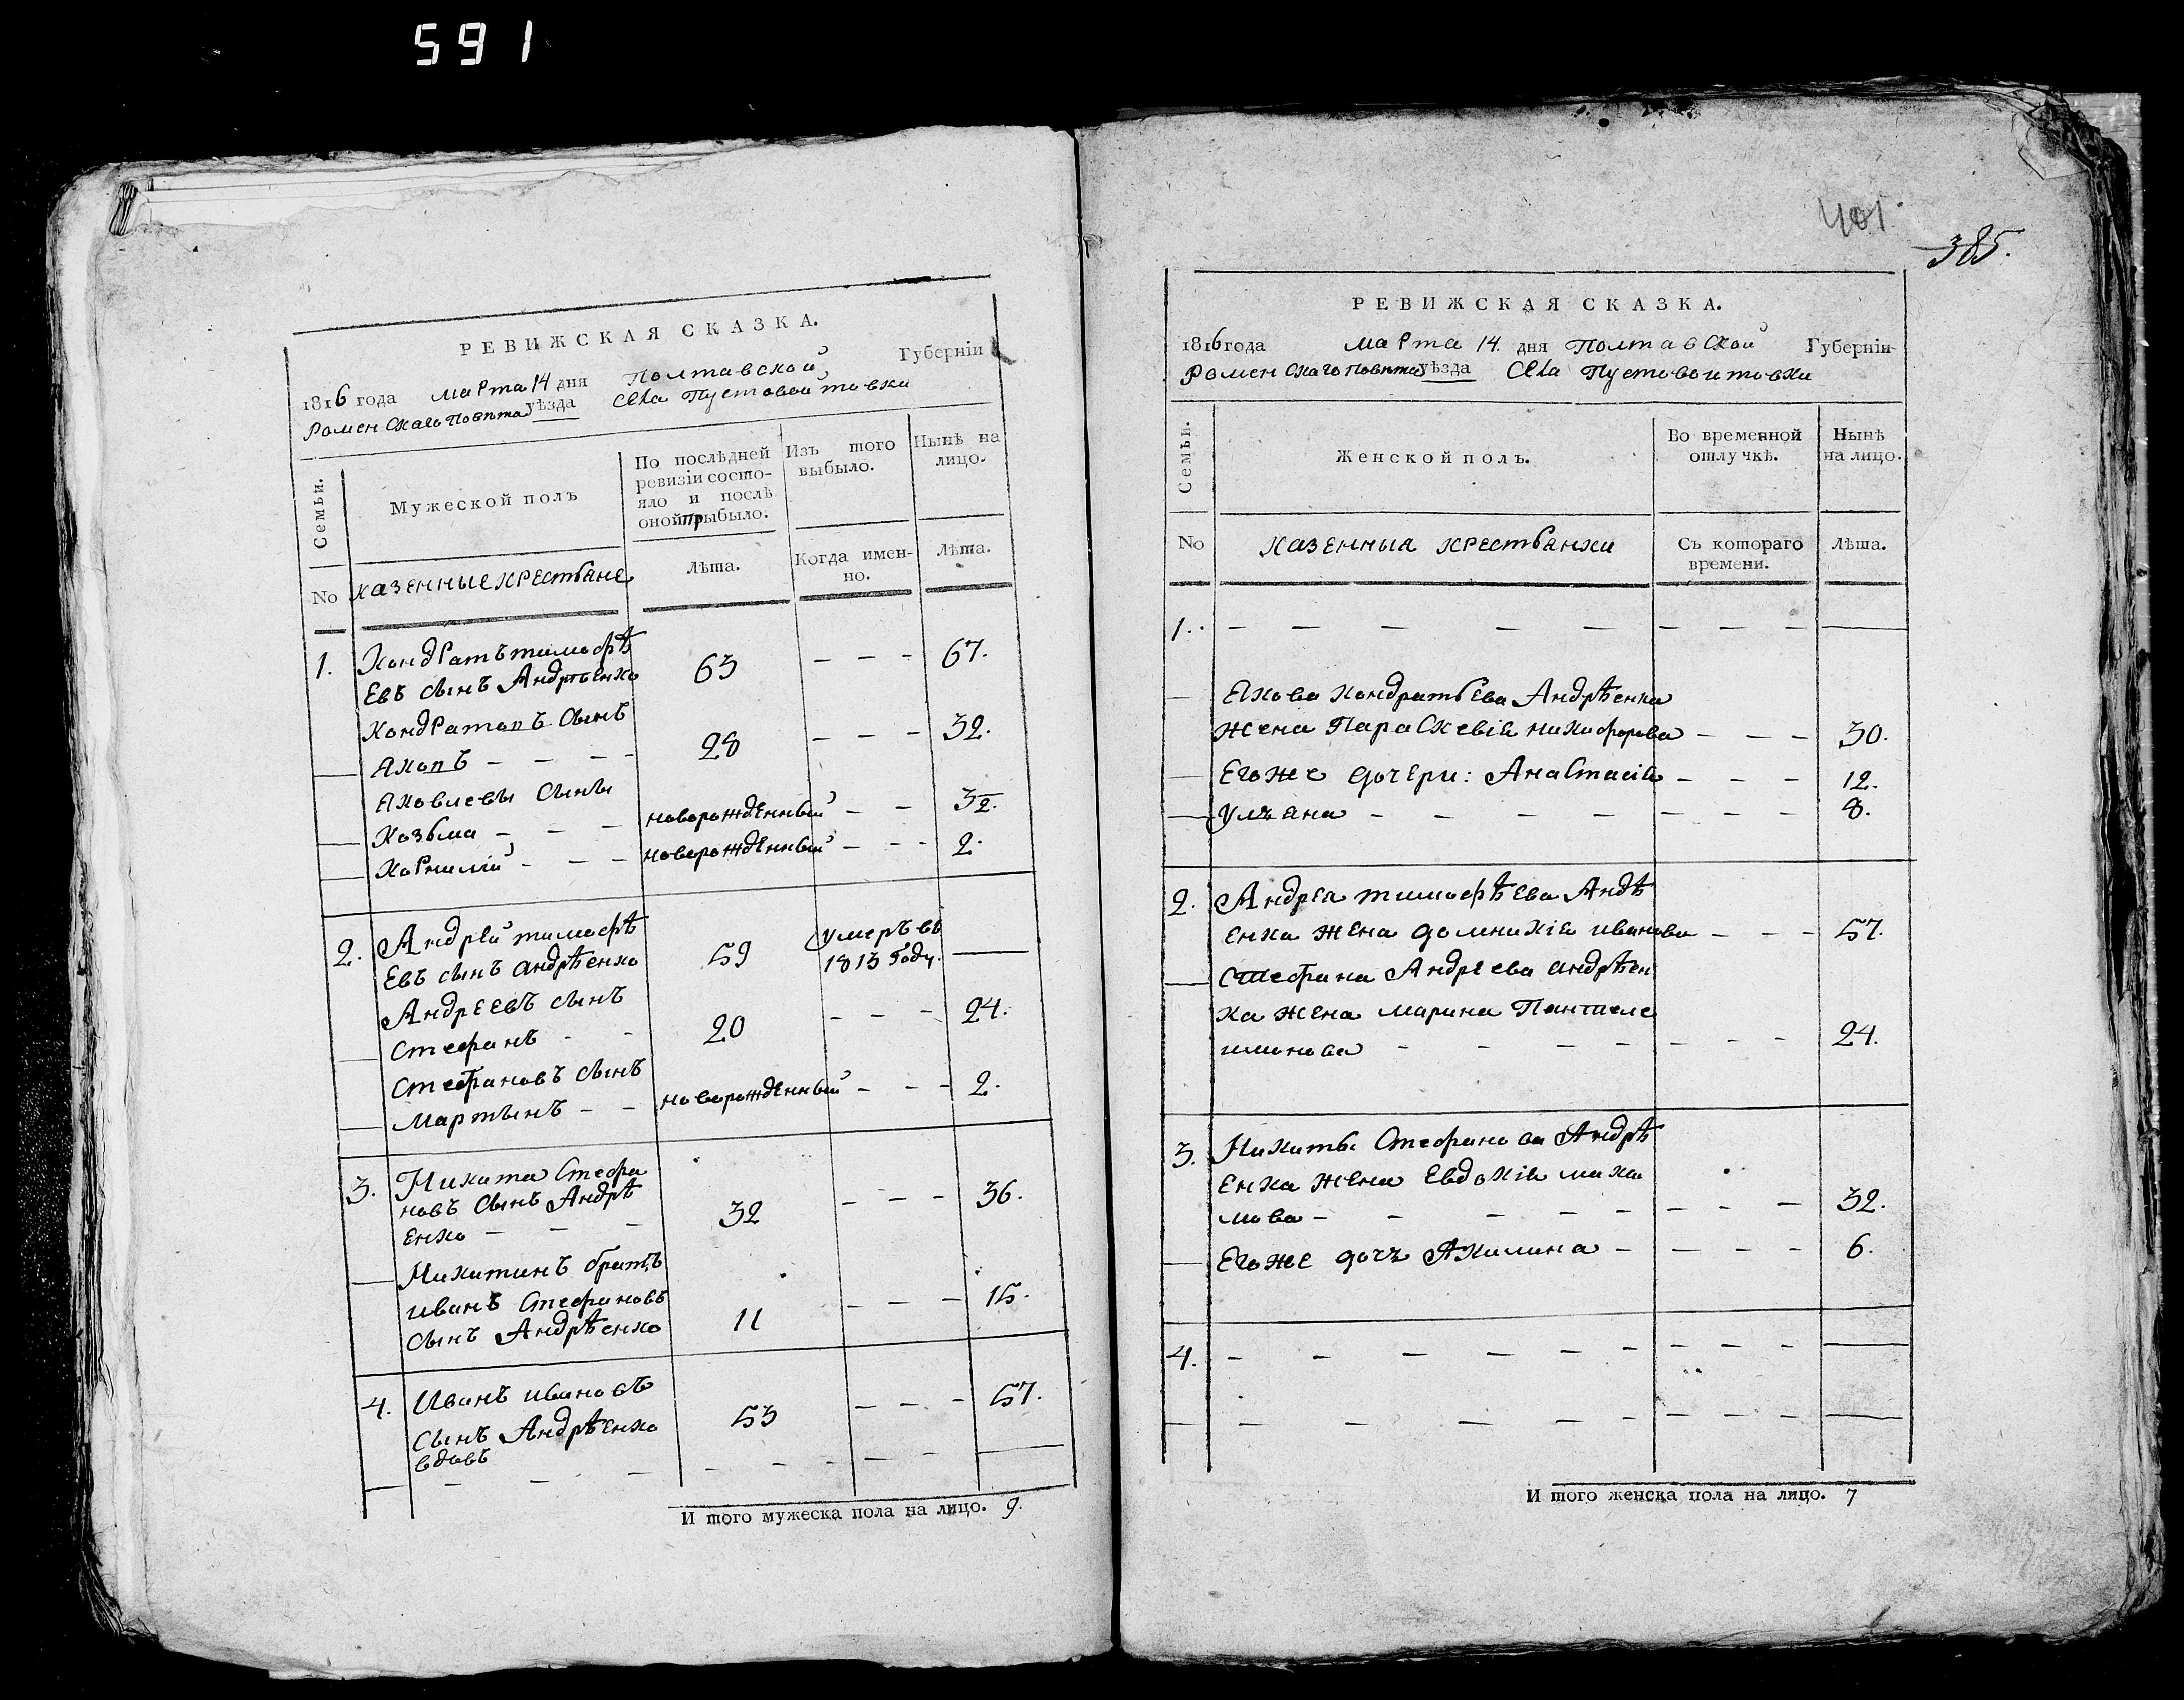 591
РЕВИЖСКАЯ СКАЗКА.
1816 года марта 14 дня Полтавской Губерніи
Роменскаго Повѣта уѣзда Села Пустовойтовки
Семьи. Мужеской полъ По послѣдней ревизіи состояло и послѣ оной прибыло. Изъ того выбыло. Нынѣ на лицо.
No казенные крестьяне Лѣта. Когда именно. Лѣта.
1. Кондратъ тимофѣ
евъ сынъ Андрѣенко 63 — — — 67.
Кондратовъ Сынъ
Яковъ — — — — 28 — — — 32.
Яковлевы Сыны
Козьма — — — новорожденный — — 3½.
Корнилій — — — новорожденный — — — 2.
2. Андрей тимофѣ
евъ сынъ андрѣенко 59 умеръ въ 1813 году. —
Андреевъ сынъ
Стефанъ — — 20 — — — 24.
Стефановъ сынъ
Мартынъ — — новорожденный — — — 2.
3. Никита Стефа
новъ Сынъ Андрѣ
енко — — — 32 — — — 36.
Никитинъ братъ
иванъ Стефановъ
Сынъ Андрѣенко 11 — — — 15.
4. Иванъ ивановъ
Сынъ Андрѣенко 53 — — — 57.
вдовъ
И того мужеска пола на лицо. 9.
401
385.
РЕВИЖСКАЯ СКАЗКА.
1816 года марта 14. дня Полтавской Губерніи
Роменскаго Повѣта уѣзда Села Пустовойтовки
Семьи. Женской полъ. Во временной отлучкѣ. Нынѣ на лицо.
No казенныя крестьянки Съ котораго времени. Лѣта.
1. — — — — — — — — —
Якова Кондратьева Андрѣенка
жена Параскевія никифорова — — — 30.
Егоже дочери: Анастасія — — — 12.
Ульяна — — — — — — — — 8.
2. Андрея тимофѣева Андѣ
енка жена домникія иванова — — — 57.
Стефана Андреева андрѣен
ка жена марина Пантиеле
имонова — — — — — — — 24.
3. Никиты Стефанова Андрѣ
енка жена Евдокія миха
лова — — — — — — — — 32.
Егоже дочь Акилина — — — — 6.
4. — — — — — — — — — —
И того женска пола на лицо. 7